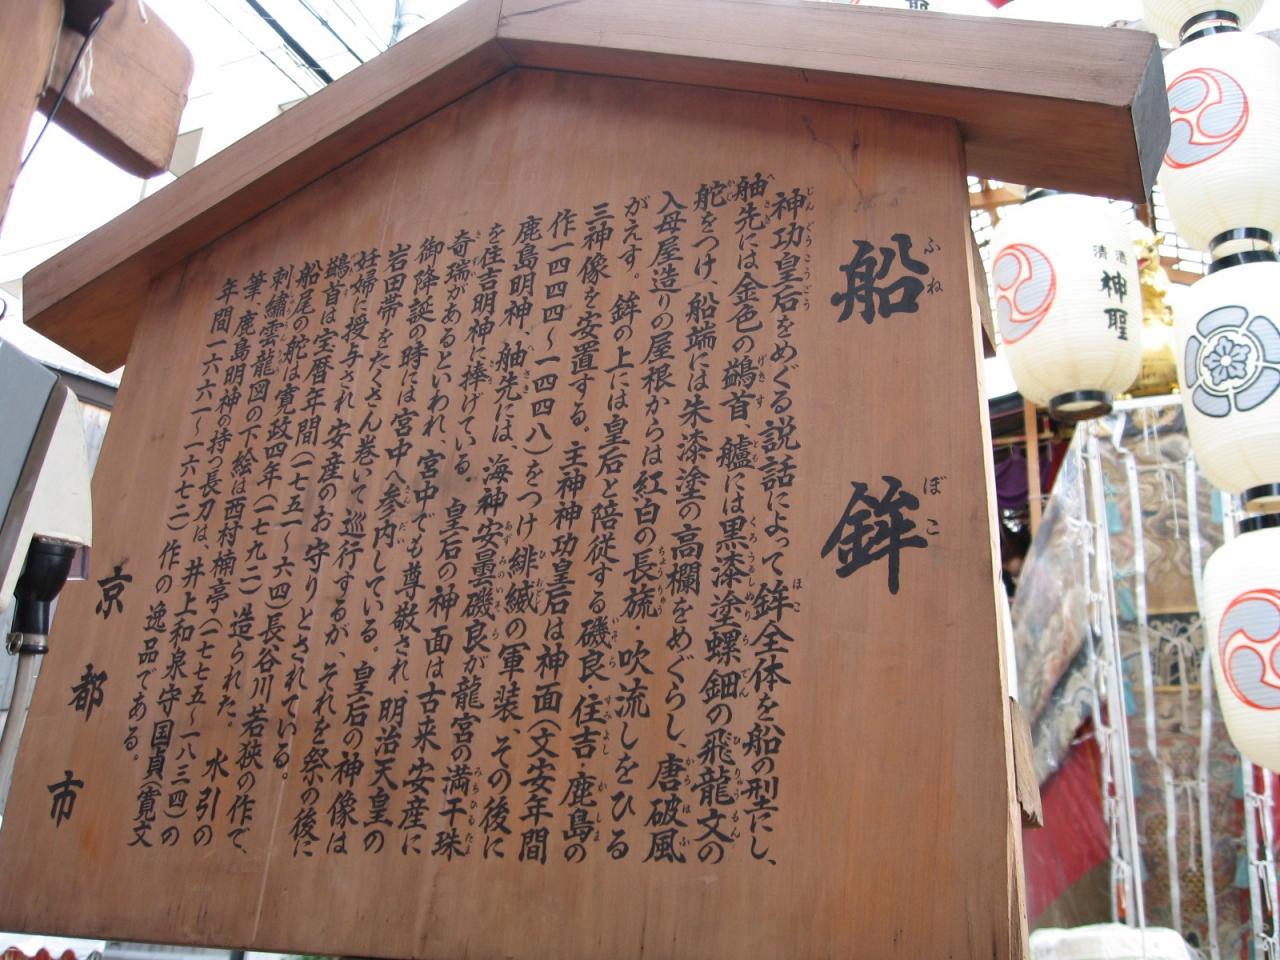 船鉾
神功皇后をめぐる説話によって鉾全体を船の型にし、
舳先には金色の鷁首、艫には黒漆塗螺鈿の飛龍文の
舵をつけ、船端には朱漆塗の高欄をめぐらし、唐破風
入母屋造りの屋根からは紅白の長旒・吹流しをひる
がえす。鉾の上には皇后と陪従する磯良・住吉・鹿島の
三神像を安置する。主神神功皇后は神面(文安年間
作一四四四〜一四四八)をつけ緋縅の軍装、その後に
鹿島明神、舳先には、海神安曇磯良が龍宮の満干珠
を住吉明神に捧げている。皇后の神面は古来安産に
奇瑞があるといわれ、宮中でも尊敬され、明治天皇の
御降誕の時には宮中へ参内している。皇后の神像は
岩田帯をたくさん巻いて巡行するが、それを祭の後に
妊婦に授与され安産のお守りとされている。
鷁首は宝暦年間(一七五一〜六四)長谷川若狭の作で、
船尾の舵は寛政四年(一七九二)造られた。水引の
刺繡雲龍図の下絵は西村楠亭(一七七五〜一八三四)の
筆、鹿島明神の持つ長刀は、井上和泉守国貞(寛文
年間一六六一〜一六七二)作の逸品である。
京都市
清酒
神聖
聖